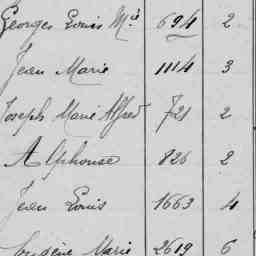 Georges Louis Mie 694 2
Jean Marie 1114 3
Joseph Marie Alfred 721 2
Alphonse 826 2
Jean Louis 1663 4
Eugène Marie 2619 6